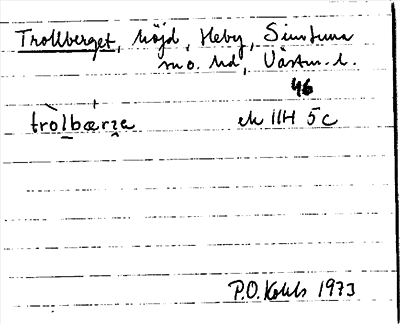 Trollberget, höjd, Heby, Simtuna
sn o. hd, Västm. l.
46
tròlbærʒa ek 11H 5c
P.O. 1973